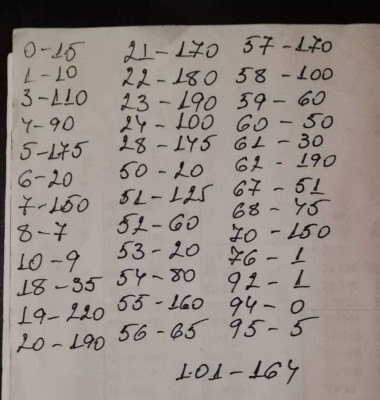 0-15
1-10
3-110
4-90
5-175
6-20
7-150
8-7
10-9
18-35
19-220
20-190
21-170
22-180
23-190
24-100
28-145
50-20
51-125
52-60
53-20
54-80
55-160
56-65
57-170
58-100
59-60
60-50
61-30
62-190
67-51
68-45
70-150
76-1
92-1
94-0
95-5
101-164